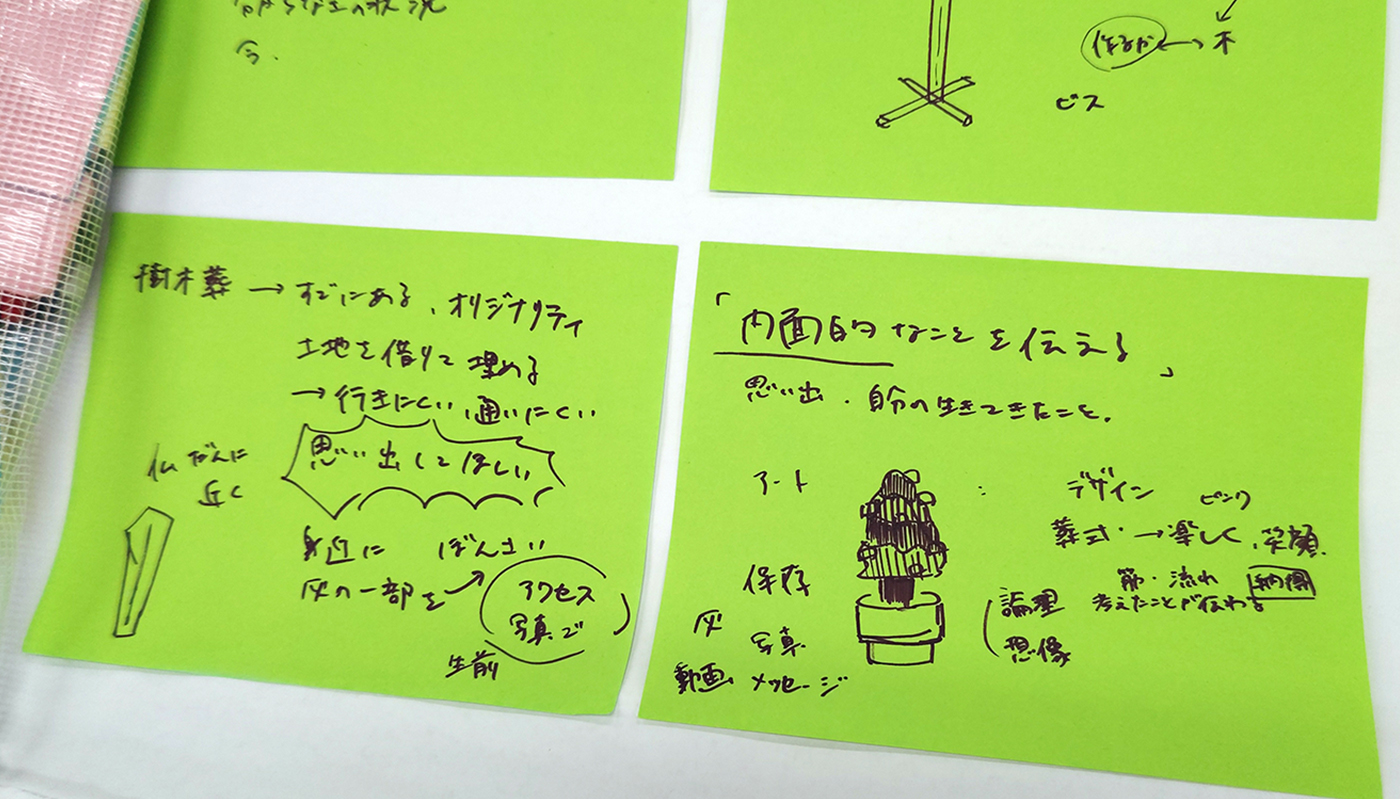 の状況
今.
作るか ←→ 木
ビス
樹木葬 → すでにある、オリジナリティ
土地を借りて埋める
→ 行きにくい、通いにくい
思い出してほしい
仏だんに
近く
身近に ぼんさい
灰の一部を
アクセス
写真で
生前
「内面的なことを伝える」
思い出・自分の生きてきたこと。
アート : デザイン ピンク
葬式・→楽しく、笑顔.
保存
筋・流れ 納得
論理 考えたことが伝わる
灰 写真 想像
動画 メッセージ